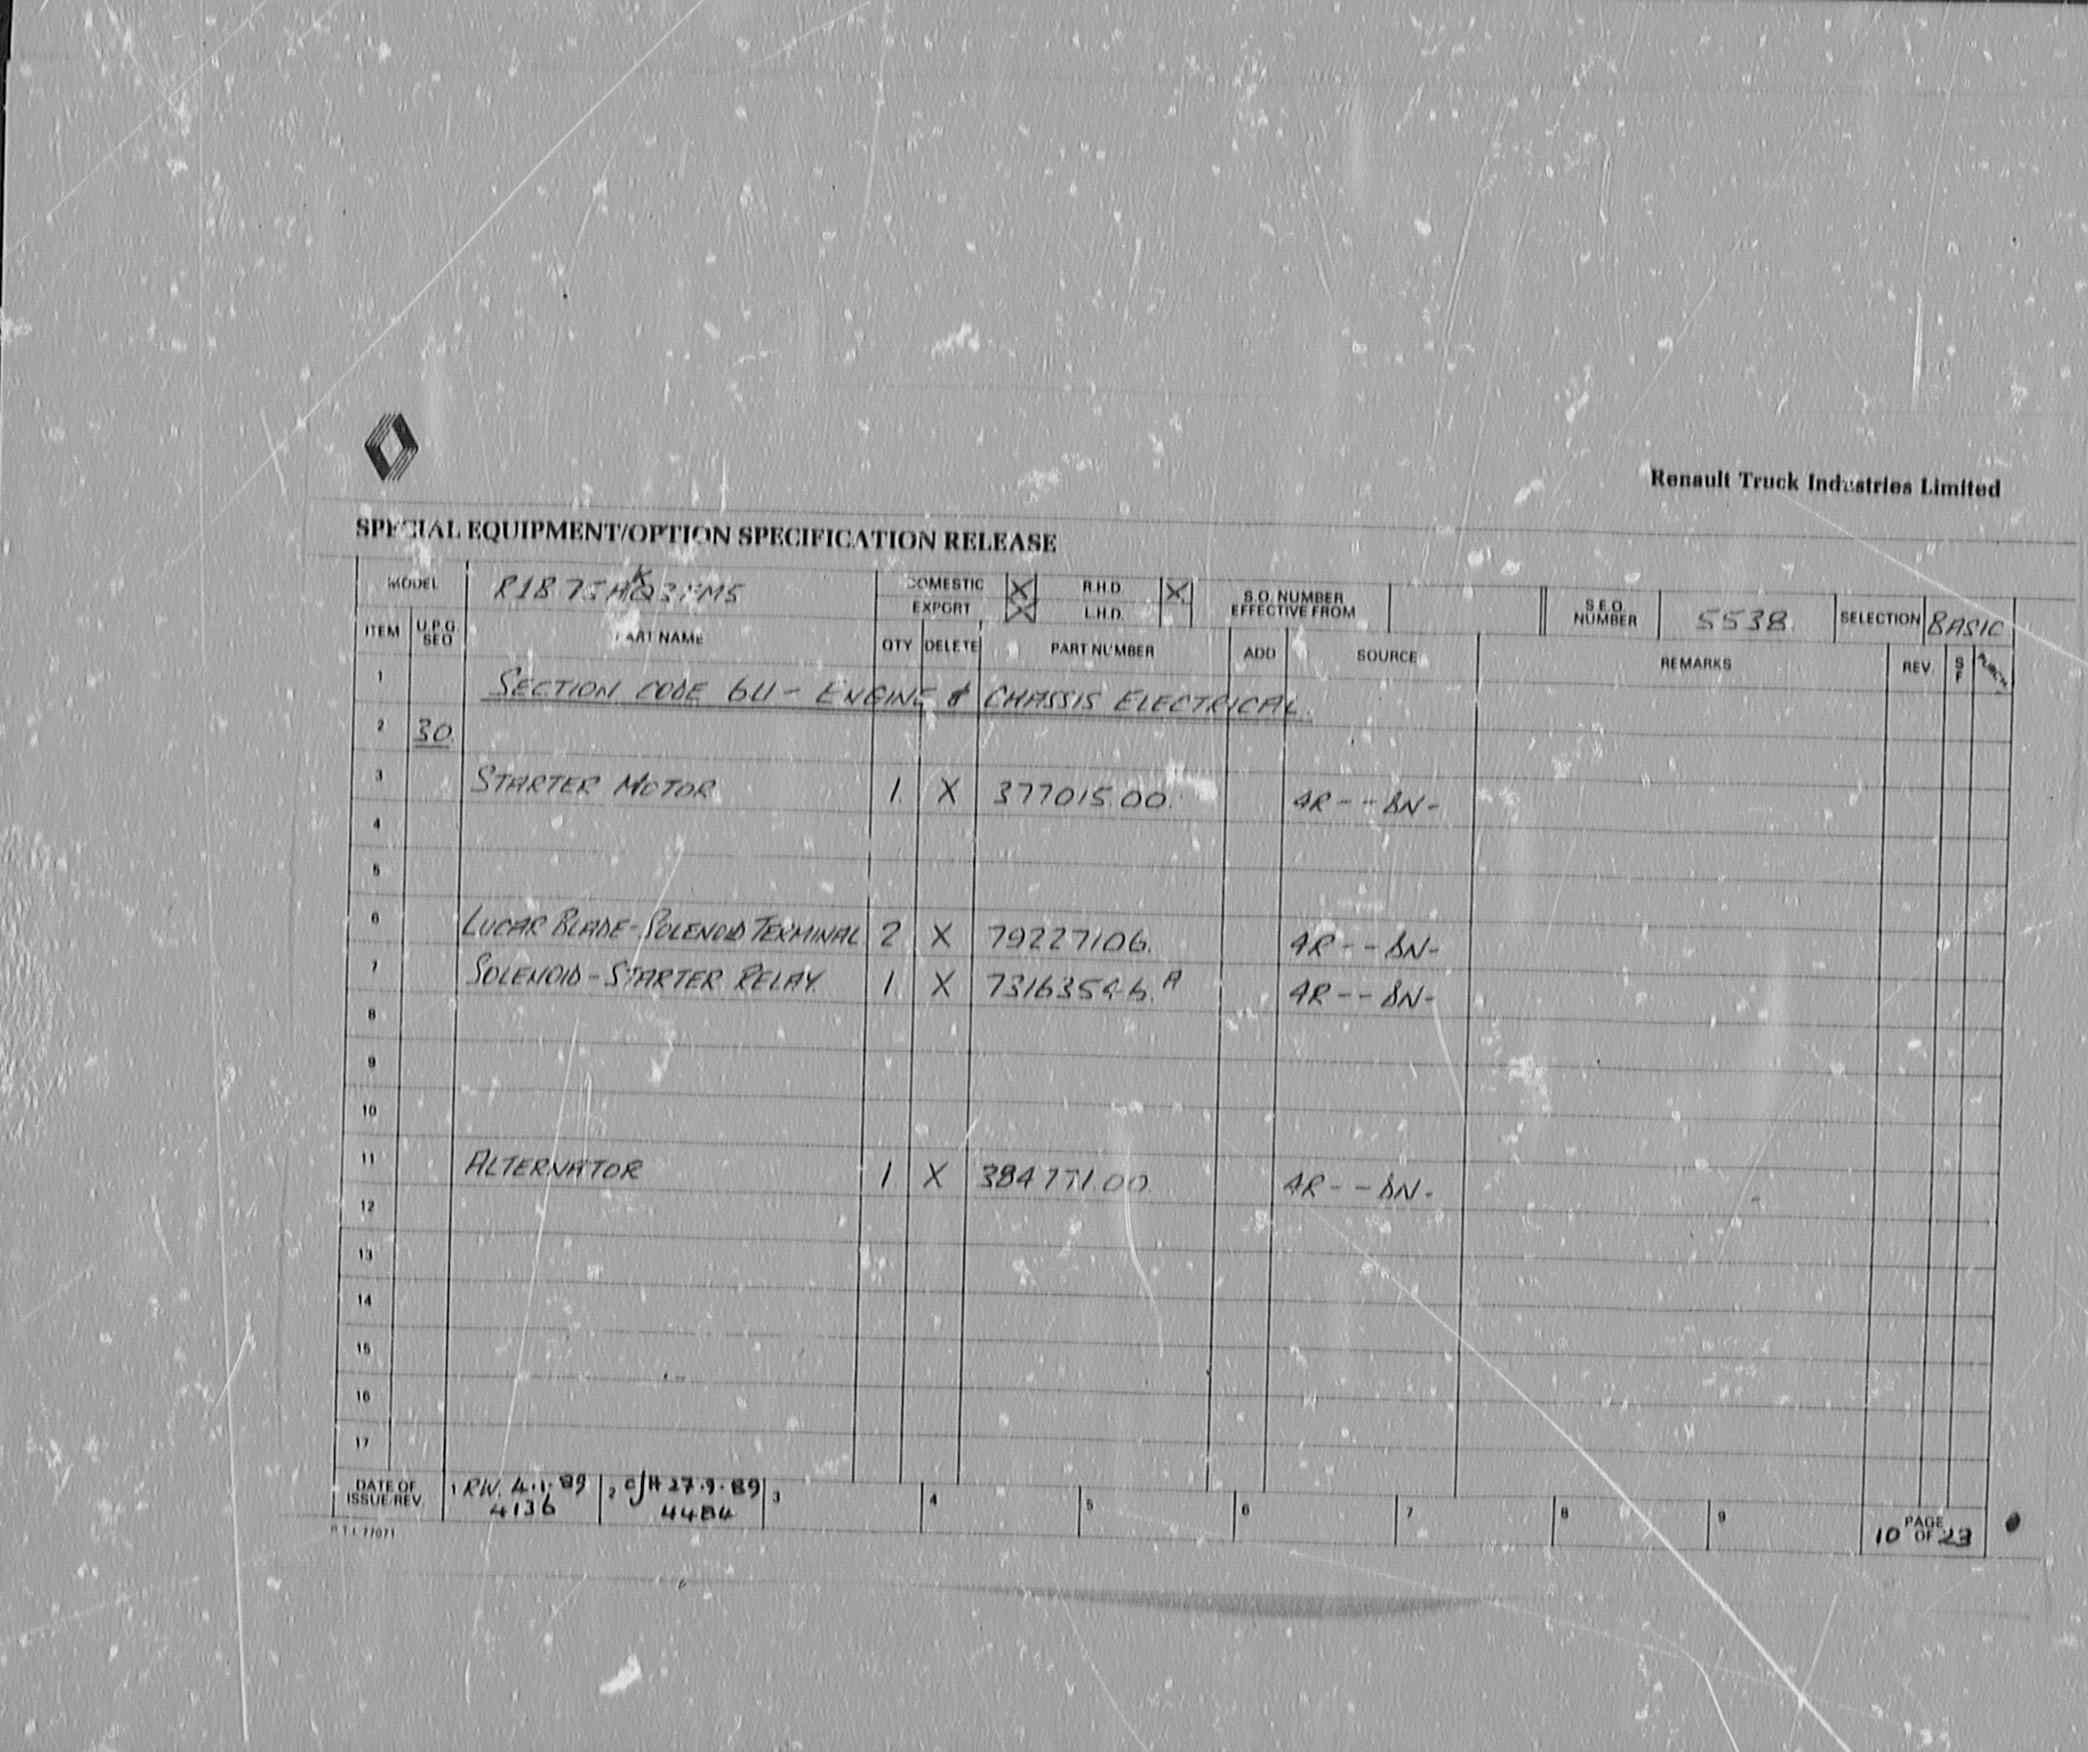 Renault Truck Industries Limited
SPECIAL EQUIPMENT/OPTION SPECIFICATION RELEASE
MODEL
DOMESTIC X R.H.D. X
EXPORT X L.H.D.
S.O. NUMBER EFFECTIVE FROM
S.E.O. NUMBER 5538.
SELECTION BASIC
ITEM U.P.G. SEQ PART NAME QTY DELETE PART NUMBER ADD SOURCE REMARKS REV. S F
1 SECTION CODE 6U - ENGINE & CHASSIS ELECTRICAL.
2 30.
3 STARTER MOTOR 1. X 377015.00. AR - - BN -
4
5
6 LUCAR BLADE - SOLENOID TERMINAL 2 X 79227106. AR - - BN -
7 SOLENOID - STARTER RELAY. 1. X AR - - BN -
8
9
10
11 ALTERNATOR 1 X AR - - BN -
12
13
14
15
16
17
DATE OF ISSUE/REV. 1 RW. 4.1.89 4136 2 CJH 27.9.89 4484 3 4 5 6 7 8 9 PAGE 10 OF 23
R.T.I. 77071